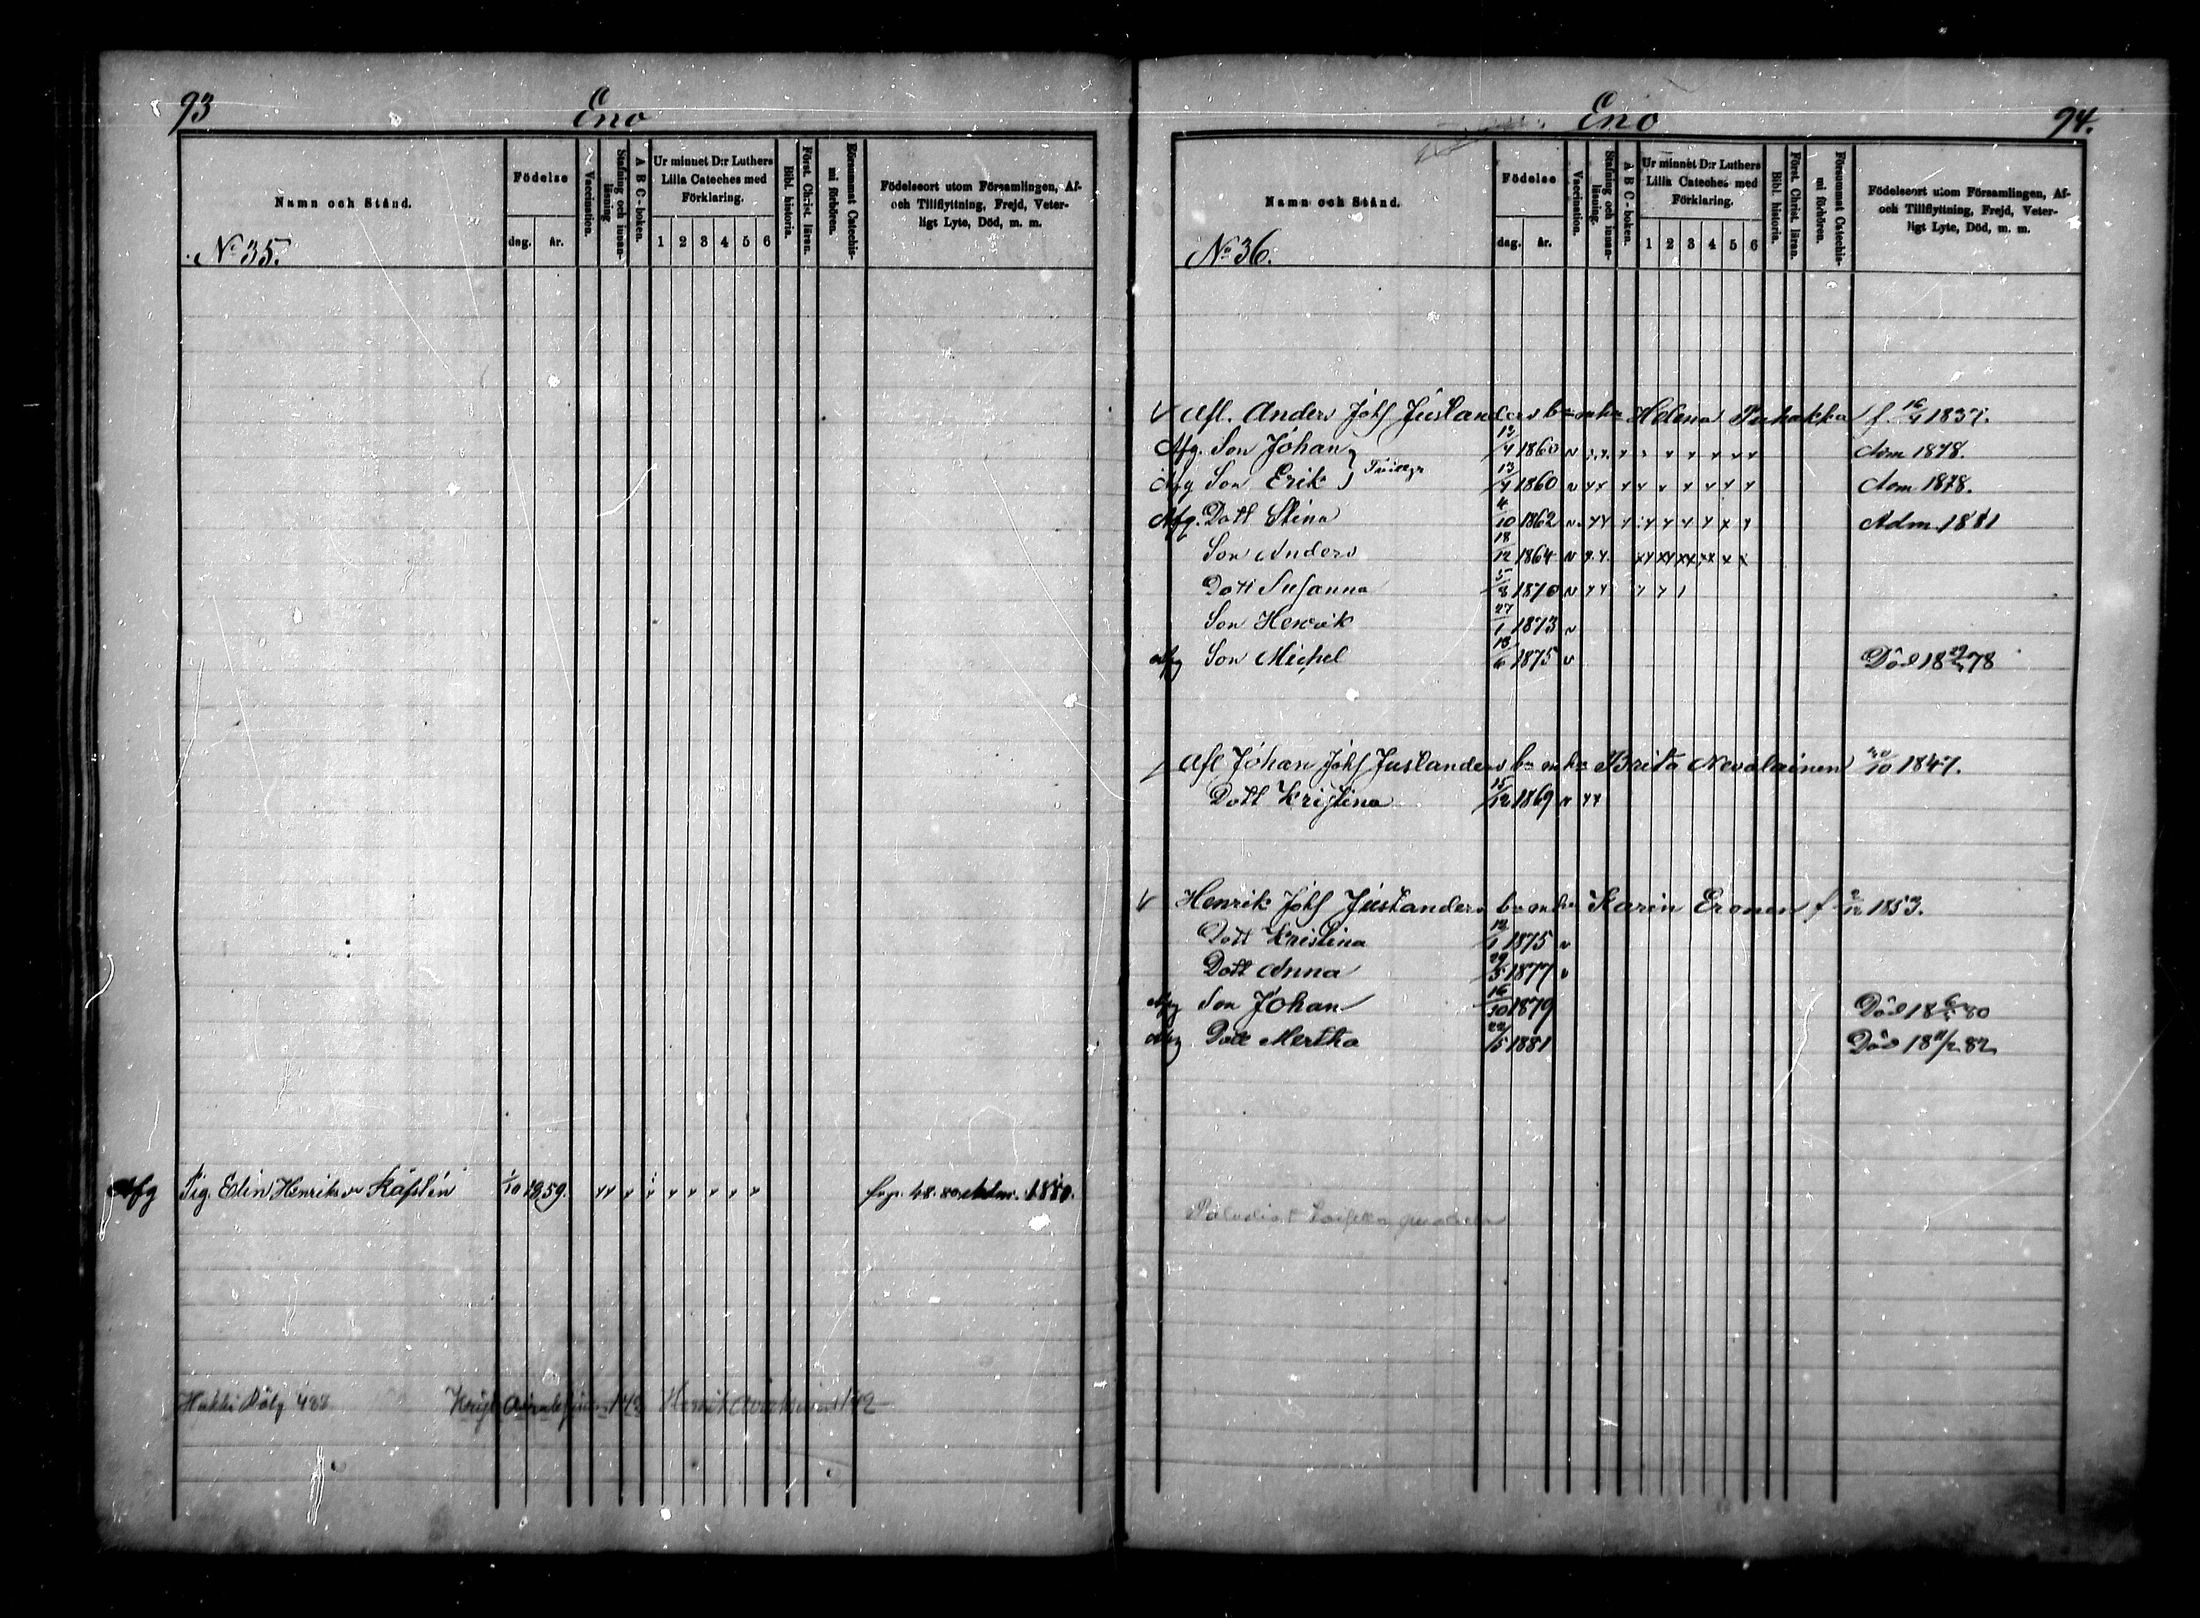 93
Eno
Namn och Stånd.
No 35.
Födelse
dag.
år.
Vaccination.
Stafning och innan-
läsning
A B C-boken.
Ur minnet D:r Luthers
Lilla Cateches med
Förklaring.
1 2 3 4 5 6
Bibl. historia.
Först. Christ. läran.
Försummat Catechis-
mi förhören.
Födelseort utom Församlingen, Af-
och Tillflyttning, Frejd, Veter-
ligt Lyte, Död, m. m.
Afg Pig. Elin Henriksdr 1/10 1859. Adm. 1880.
Eno
94.
Namn och Stånd.
No 36.
Födelse
dag.
år.
Vaccination.
Stafning och innan-
läsning.
A B C-boken.
Ur minnet D:r Luthers
Lilla Cateches med
Förklaring.
1 2 3 4 5 6
Bibl. historia.
Först. Christ. läran.
Försummat Catechis-
mi förhören.
Födelseort utom Församlingen, Af-
och Tillflyttning, Frejd, Veter-
ligt Lyte, Död, m. m.
Afl. Anders Johs Juslanders Helena Puhakka f. 1837.
Afg. Son Johan 1860 Adm 1878.
Afg Son Erik 13/4 1860 Adm 1878.
Afg. Dott Stina 4/10 1862 Adm 1881
Son Anders 18/12 1864
Dott Susanna 1870
Son Henrik 27/1 1873
Afg Son Michel 18/6 1875 Död 18 78
Afl Johan Johs Juslanders Brita Nevalainen 1847.
Dott Kristina 15/12 1869
Henrik Johs Juslanders Karin Eronen f 1853.
Dott Kristina 12/1 1875
Dott Anna 29/5 1877
Afg Son Johan 16/10 1879 Död 18 80
Afg Dott Mertha 22/5 1881 Död 18 11/2 82